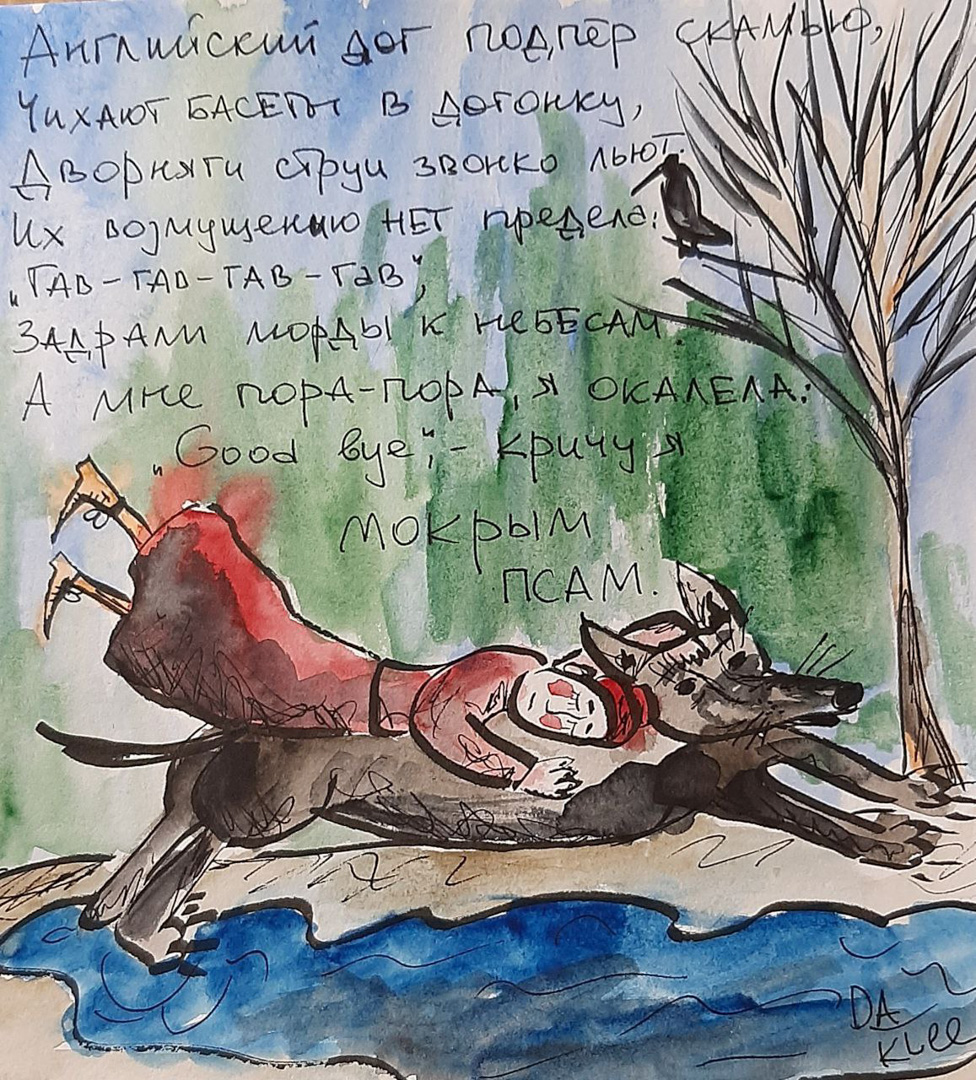 Английский дог подпёр скамью,
Чихают басеты в догонку,
Дворняги струи звонко льют.
Их возмущению нет предела:
"ГАВ-ГАВ-ГАВ-ГАВ",
Задрали морды к небесам.
А мне пора-пора, я околела:
"Good bye", - кричу я
мокрым
псам.
DA
KLEE